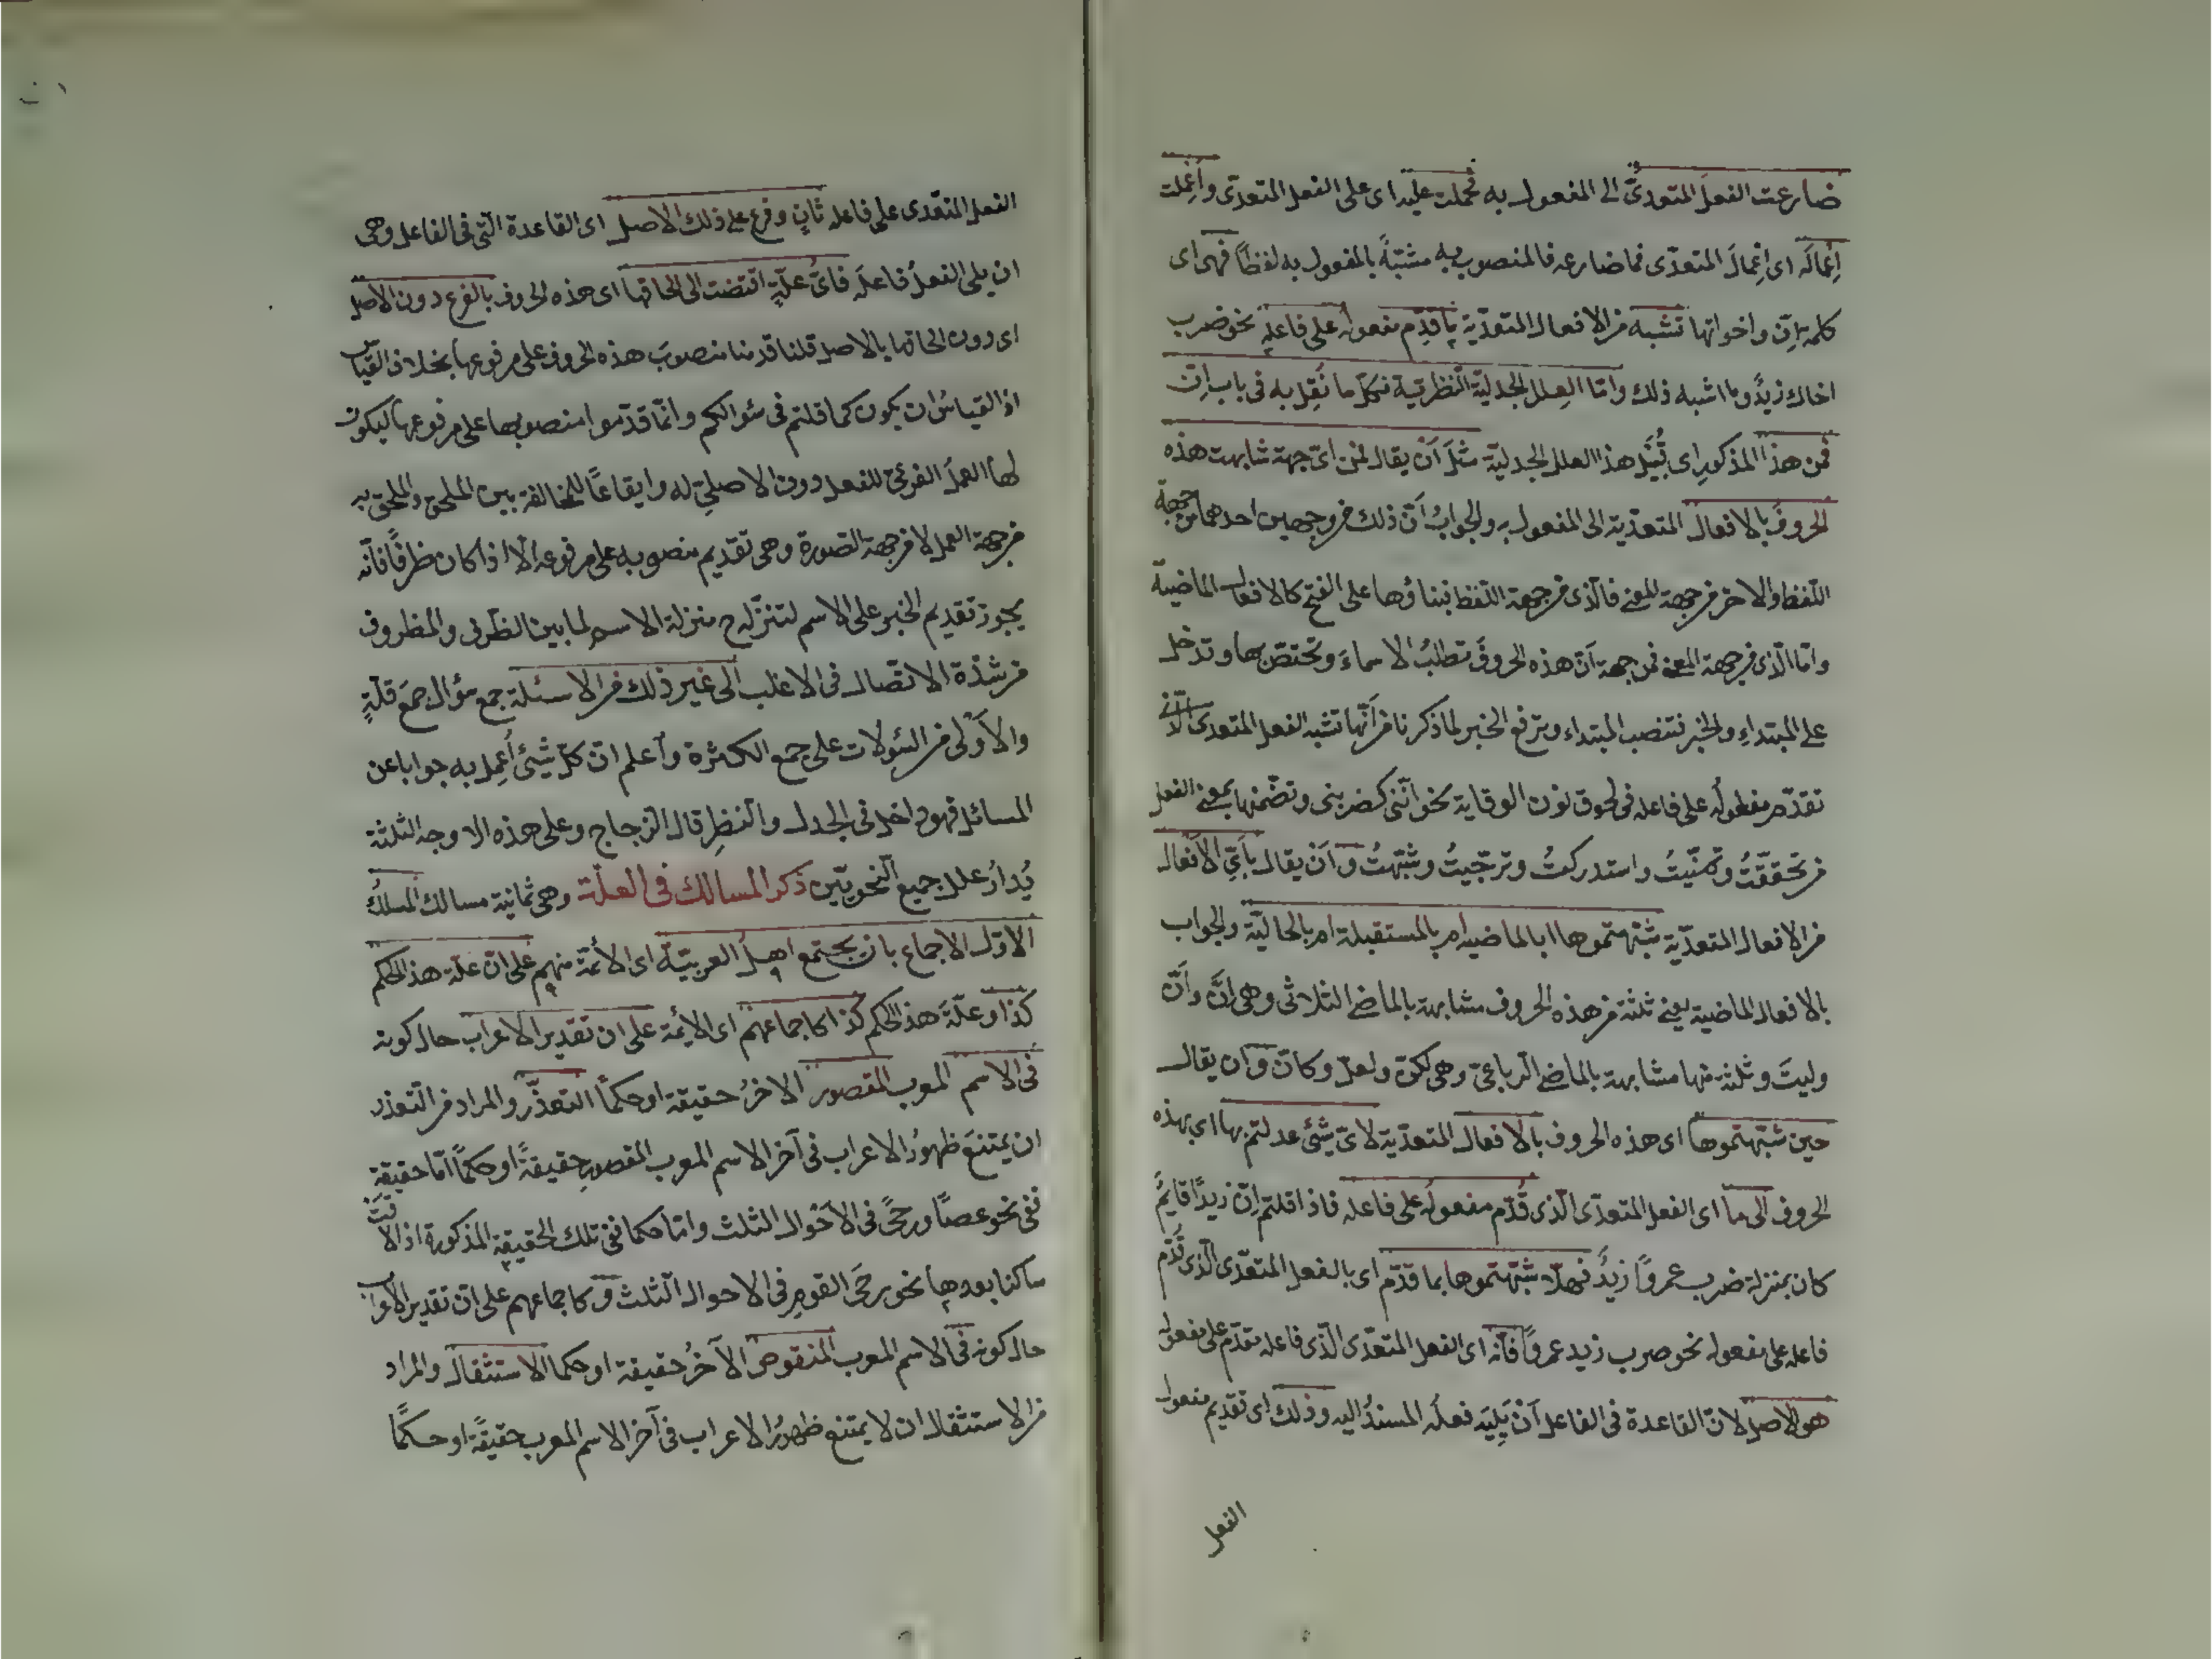 ضارعت الفعلَ المتعدىَّ الى المفعول به فحملت عليه اى على الفعل المتعدّى وأُعْمِلت
إعمالَه اى إعمالَ المتعدّى لما ضارعه فالمنصوب به مشتبهٌ بالمفعول به لفظًا فهى اى
كلمة اِنّ واخواتها تشبه من الافعال المتعدّية ما قدّم مفعوله على فاعله نحو ضرب
اخاك زيدٌ وما اشبه ذلك وامّا العِلل الجدليّة النظريّة فكلّ ما نُقِل به فى باب اِنّ
فمن هذا المذكورِ اى قُبَيْل هذا العلل الجدليّة مثلَ اَنْ يقال فمن اىّ جهة شابهت هذه
الحروفُ بالافعال المتعدّية الى المفعول به والجوابُ اَنّ ذلك من وجهين احدهما من جهة
اللّفظ والاخر من جهة المعنى فالّذى من جهة اللّفظ فبناؤها على الفتح كالافعال الماضيّة
وامّا الّذى من جهة المعنى فمن جهة اَنّ هذه الحروفَ تطلبُ الاسماءَ وتختصّ بها وتدخل
على المبتداءِ والخبر فتنصب المبتداء وترفع الخبر لما ذكرنا من اَنّها تشبه الفعل المتعدى الّذى
تقدّم مفعولُه على فاعله فى لحوق نون الوقاية نحو انّنى كضربنى وتضمّنها بمعنى الفعل
من تحقّقتُ وتمنّيتُ واستدركتُ وترجّيتُ وشبّهتُ وَاَنْ يقال بِاَىّ الاَفعال
من الافعال المتعدّية شبّهتموها ابالماضيه ام بالمستقبلة ام بالحاليّة والجواب
بالافعال الماضية يعنى ثلثة من هذه الحروف مشابهة بالماضى الثلاثى وهى اِنَّ واَنّ
وليتَ وثلثة منها مشابهة بالماضى الرباعىّ وهى لكنّ ولعلّ وكانّ وَاَن يقال
حين شبّهتموها اى هذه الحروف بالافعال المتعدّية لاىّ شيْئ عدلتم بها اى بهذه
الحروف الى ما اى الفعل المتعدّى الّذى قُدّم مفعولُه على فاعله فاذا قلتم اِنّ زيدًا قايمٌ
كان بمنزلة ضرب عمروًا زيدٌ فهلّا شبّهتموها بما قدّم اى بالفعل المتعدّى الّذى قُدّم
فاعله على مفعوله نحو ضرب زيد عمروًا فانّه اى الفعل المتعدّى الّذى فاعله مقدّم على مفعوله
هو الاصل لانّ القاعدة فى الفاعل اَنْ يَلِيَه فعلُه المسندُ اليه وذلك اى تقديم مفعول
الفعل
الفعل المتعدى على فاعله ثانٍ وفرع على ذلك الاصل اى القاعدة الّتى فى الفاعل وهى
ان يلى الفعلُ فاعلَه فاىُّ علّةٍ اقتضت الى الحاقها اى هذه الحروف بالفرع دون الاصل
اى دون الحاقها بالاصل قلنا قدمنا منصوبَ هذه الحروف على مرفوعها بخلاف القياس
اذ القياسُ ان يكون كما قلتم فى سئوالكم وانّما قدّموا منصوبها على مرفوعها ليكون
لها العملُ الفرعىّ للفعل دون الاصلىّ له وايقاعًا للمخالفة بين الملحق والملحق به
من جهة العمل لا من جهة الصّورة وهى تقديم منصوبه على مرفوعه الّا اذا كان ظرفًا فانّه
يجوز تقديم الخبر على الاسم لتنزّله ح منزلة الاسم لما بين الظّرف والمظروف
من شدّة الاتّصال فى الاغلب الى غير ذلك من الاسئلة جمع سؤال جمعَ قلّةٍ
والاَوْلى من السّئولات على جمع الكثرة وآعلم انّ كلّ شيْئ أُعمِل به جوابا عن
المسائل فهو داخل فى الجدل والنّظرِ قال الزّجاج وعلى هذه الاوجه الثلثة
يُدارُ علل جميع النّحويّين ذكر المسالك فى العلّة وهى ثمانية مسالك المسلكُ
الاوّل الاجماع بان يجتمع اهلُ العربيّة اى الأئمّة منهم على انّ علّة هذ الحكم
كذا وعلّةَ هذا الحكم كذا كاجماعهم اى الائمّة على ان تقدير الاعراب حال كونه
فى الاسم المعرب المقصور الاخرُ حقيقة او حكماً التعذّر والمراد من التّعذر
ان يمتنعَ ظهورُ الاعراب فى آخر الاسم المعرب المقصورِ حقيقةً او حكمًا امّا حقيقة
ففى نحو عصًا ورحًى فى الاَحْوال الثلث وامّا حكما ففى تلك الحقيقة المذكورة اذا لاقَتْ
ساكنا بعدها نحو رحَى القومِ فى الاحوال الثلث وَكاجماعهم على انّ تقدير الاعراب
حال كونه فى الاسم المعرب المنقوص الآخرُ حقيقة او حكما الاستثقال والمراد
من الاستثقال ان لا يمتنع ظهورُ الاعراب فى آخر الاسم المعرب حقيقةً او حكمًا